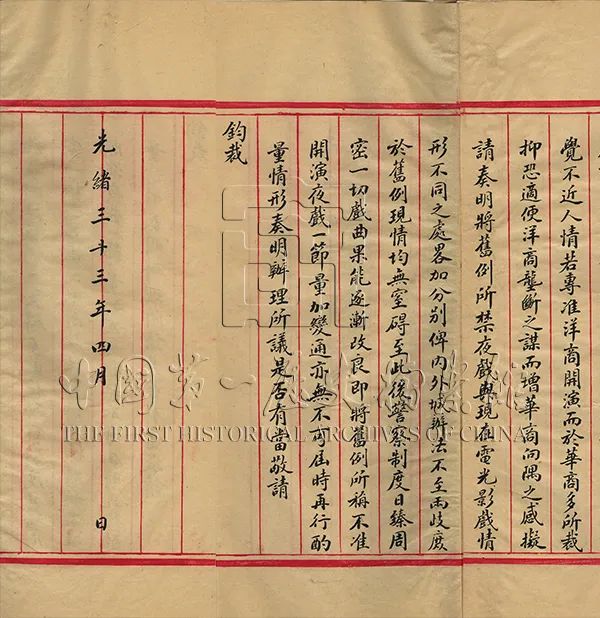 覺不近人情若專准洋商開演而於華商多所裁
抑恐適使洋商壟斷之謀而增華商向隅之感擬
請奏明將舊例所禁夜戲與現在電光影戲情
形不同之處畧加分別俾內外城辦法不至兩歧庶
於舊例現情均無窒碍至此後警察制度日臻周
密一切戲曲果能逐漸改良即將舊例所稱不准
開演夜戲一節量加變通亦無不可屆時再行酌
量情形奏明辦理所議是否有當敬請
鈞裁
光緒三十三年四月 日
中國第一歷史檔案館
THE FIRST HISTORICAL ARCHIVES OF CHINA